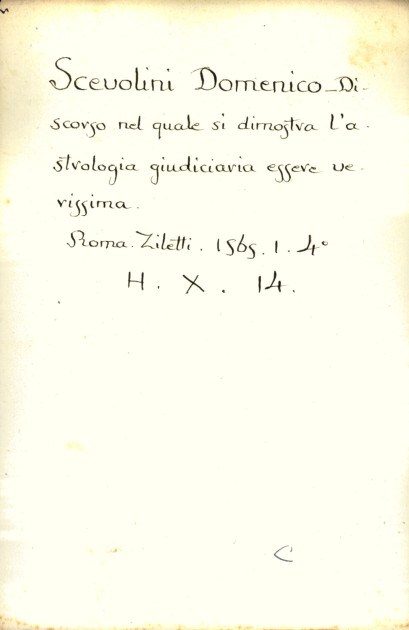 Scevolini Domenico_Di-
scorso nel quale si dimostra l'a-
strologia giudiciaria essere ve-
rissima.
Roma. Ziletti. 1565. 1. 4°
H. X. 14.
C